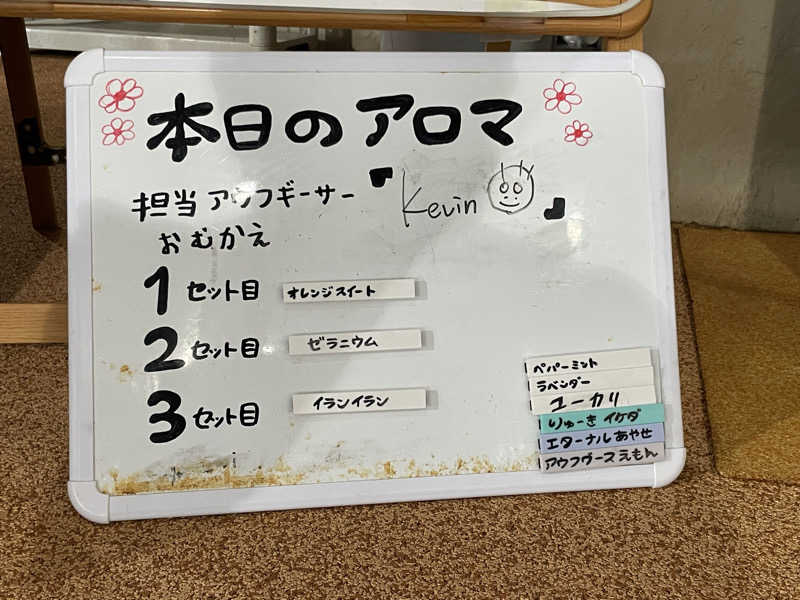 本日のアロマ
担当 アウフギーサー 『Kevin』
おむかえ
1セット目 オレンジスイート
2セット目 ゼラニウム
3セット目 イランイラン
ペパーミント
ラベンダー
ユーカリ
りゅーき イケダ
エターナル あやせ
アウフヴース えもん